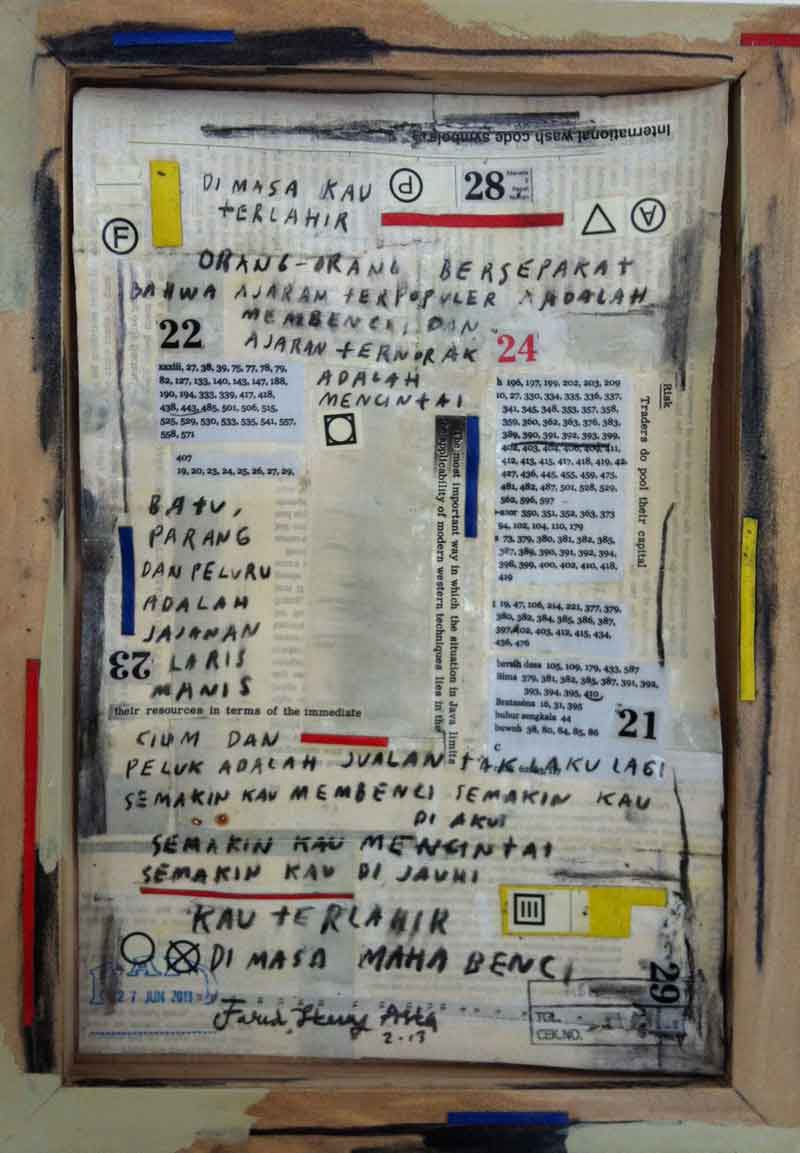 International wash code symbols
DI MASA KAU
TERLAHIR
P
28
F
A
ORANG-ORANG BERSEPAKAT
BAHWA AJARAN TERPOPULER ADALAH
MEMBENCI, DAN
AJARAN TERNORAK
ADALAH
MENCINTAI
22
24
xxxiii, 27, 38, 39, 75, 77, 78, 79,
82, 127, 133, 140, 143, 147, 188,
190, 194, 333, 339, 417, 418,
438, 443, 485, 501, 506, 515,
525, 529, 530, 533, 535, 541, 557,
558, 571
407
19, 20, 23, 24, 25, 26, 27, 29,
h 196, 197, 199, 202, 203, 209
10, 27, 330, 334, 335, 336, 337,
341, 345, 348, 353, 357, 358,
359, 360, 362, 363, 376, 383,
389, 390, 391, 392, 393, 399,
402, 403, 404, 406, 409, 411,
412, 413, 415, 417, 418, 419, 42
427, 436, 445, 455, 459, 475,
481, 482, 487, 501, 528, 529,
562, 596, 597
350, 351, 352, 363, 373
94, 102, 104, 110, 179
s 73, 379, 380, 381, 382, 385,
387, 389, 390, 391, 392, 394,
398, 399, 400, 402, 410, 418,
419
i 19, 47, 106, 214, 221, 377, 379,
380, 382, 384, 385, 386, 387,
397, 402, 403, 412, 415, 434,
436, 476
bersih desa 105, 109, 179, 433, 587
Bima 379, 381, 382, 385, 387, 391, 392,
393, 394, 395, 410
Brataséna 16, 31, 395
bubur sengkala 44
buwuh 38, 80, 84, 85, 86
C
21
Risk
Traders do pool their capital
The most important way in which the situation in Java limits
applicability of modern western techniques lies in the
BATU,
PARANG
DAN PELURU
ADALAH
JAJANAN
LARIS
MANIS
23
their resources in terms of the immediate
CIUM DAN
PELUK ADALAH JUALAN TAK LAKU LAGI
SEMAKIN KAU MEMBENCI SEMAKIN KAU
DI AKUI
SEMAKIN KAU MENCINTAI
SEMAKIN KAU DI JAUHI
KAU TERLAHIR
DI MASA MAHA BENCI
27 JUN 2011
29
TGL.
CEK.NO.
2.13